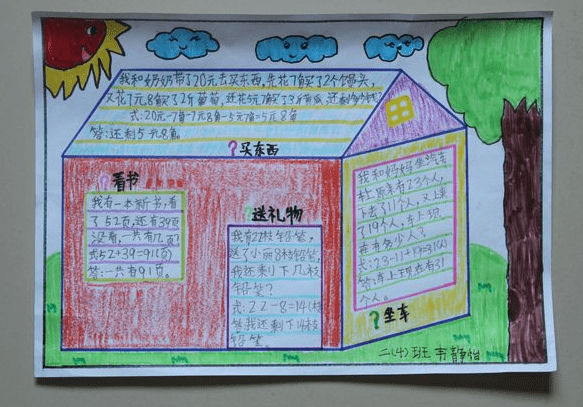 我和奶奶带了20元去买东西,先花7角买了2个馒头,
又花7元8角买了2斤葡萄,还花5元7角买了3斤黄瓜,还剩多少钱?
式:20元-7角-7元8角-5元7角=5元8角
答:还剩5元8角。
?买东西
?看书
我有一本新书,看
了52页,还有39页
没看,一共有几页?
式:52+39=91(页)
答:一共有91页。
?送礼物
我有22枝铅笔,
送了小丽8枝铅笔,
我还剩下几枝
铅笔?
式:22-8=14(枝)
答:我还剩下14枝
铅笔。
我和妈妈坐汽车
车上原来有23个人,
下去了11个人,又上来
了19个人,车上现
在有多少人?
式:23-11+19=31(人)
答:车上现在有31
个人。
?坐车
二(4)班 韦静怡